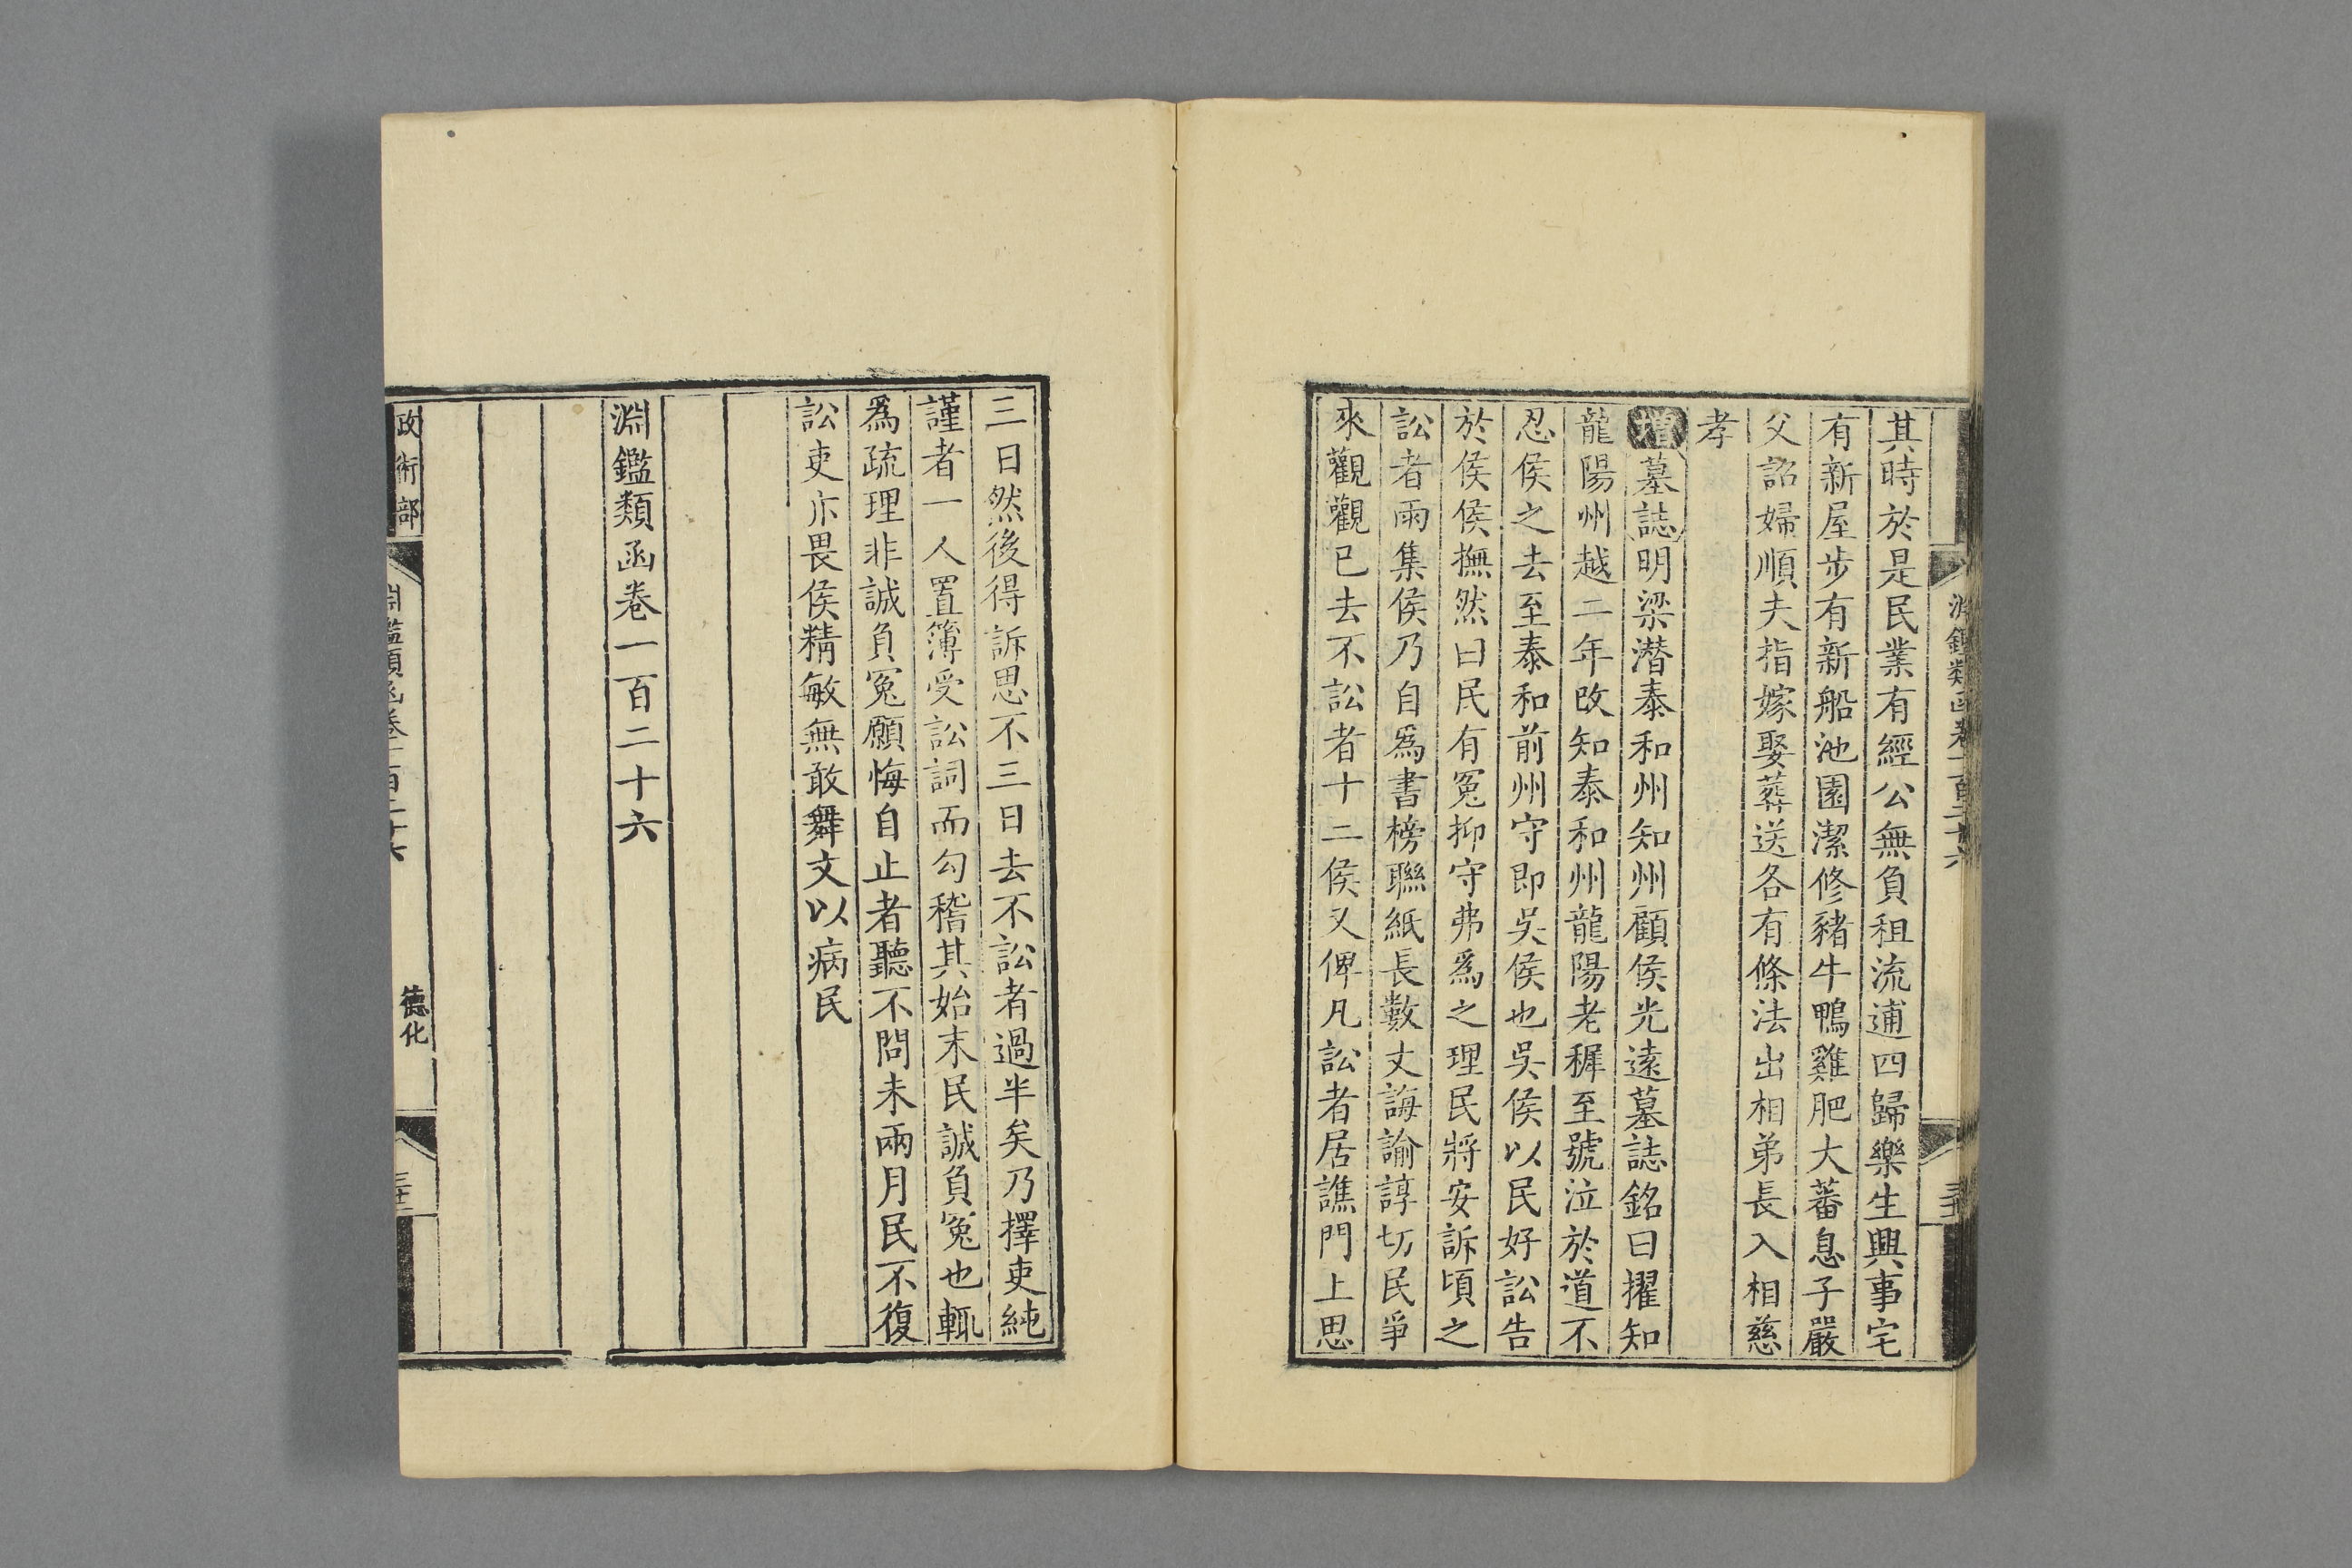 淵鑑類函卷一百二十六
其時於是民業有經公無負租流逋四歸樂生興事宅
有新屋步有新船池園潔修豬牛鴨雞肥大蕃息子嚴
父詔婦順夫指嫁娶葬送各有條法出相弟長入相慈
孝
增墓誌明梁潛泰和州知州顧侯光遠墓誌銘曰擢知
龍陽州越二年改知泰和州龍陽老穉至號泣於道不
忍侯之去至泰和前州守即吳侯也吳侯以民好訟告
於侯侯撫然曰民有冤抑守弗爲之理民將安訴頃之
訟者雨集侯乃自爲書榜聯紙長數丈誨諭諄切民爭
來觀觀已去不訟者十二侯又俾凡訟者居譙門上思
三日然後得訴思不三日去不訟者過半矣乃擇吏純
謹者一人置簿受訟詞而勾稽其始末民誠負冤也輒
爲疏理非誠負冤願悔自止者聽不問未兩月民不復
訟吏亦畏侯精敏無敢舞文以病民
淵鑑類函卷一百二十六
政術部
淵鑑類函卷一百二十六
德化